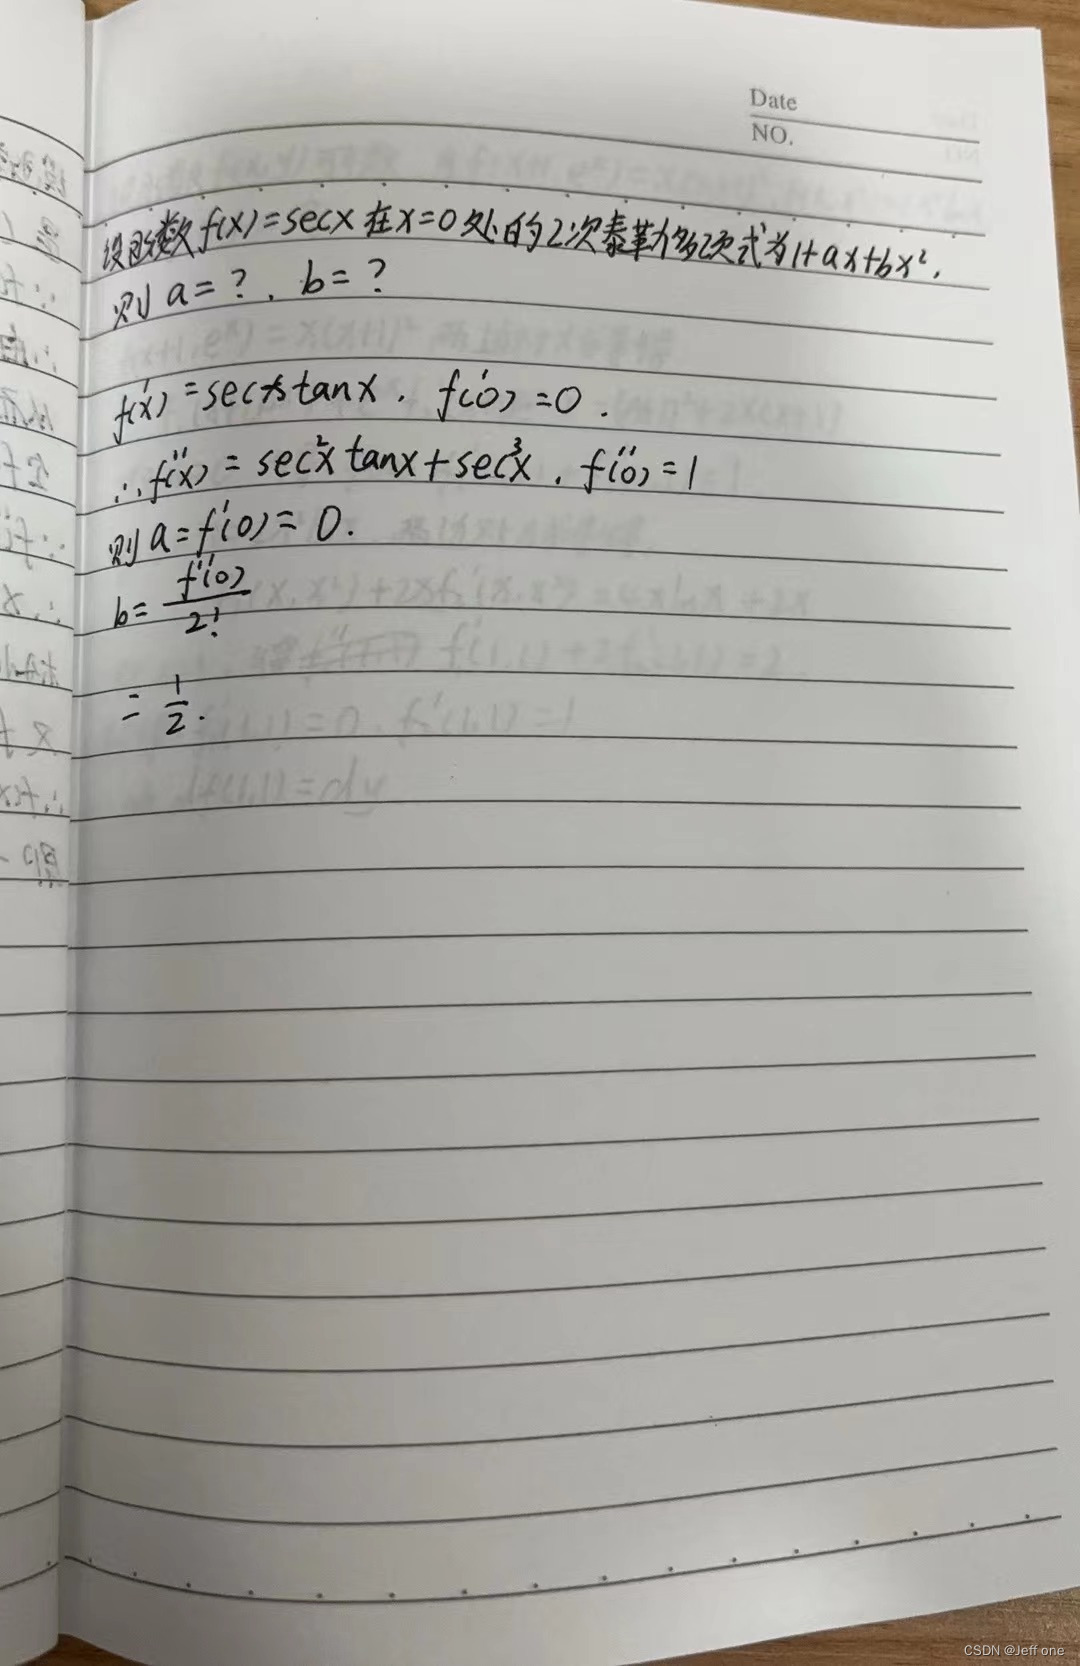 Date
NO.
设函数f(x)=secx在x=0处的2次泰勒多项式为1+ax+bx²,
则a=?, b=?
f'(x)=secxtanx, f'(0)=0.
∴f''(x)=sec²xtanx+sec³x, f''(0)=1
则a=f'(0)=0.
b=f''(0)/2!
=1/2.
CSDN @Jeff one